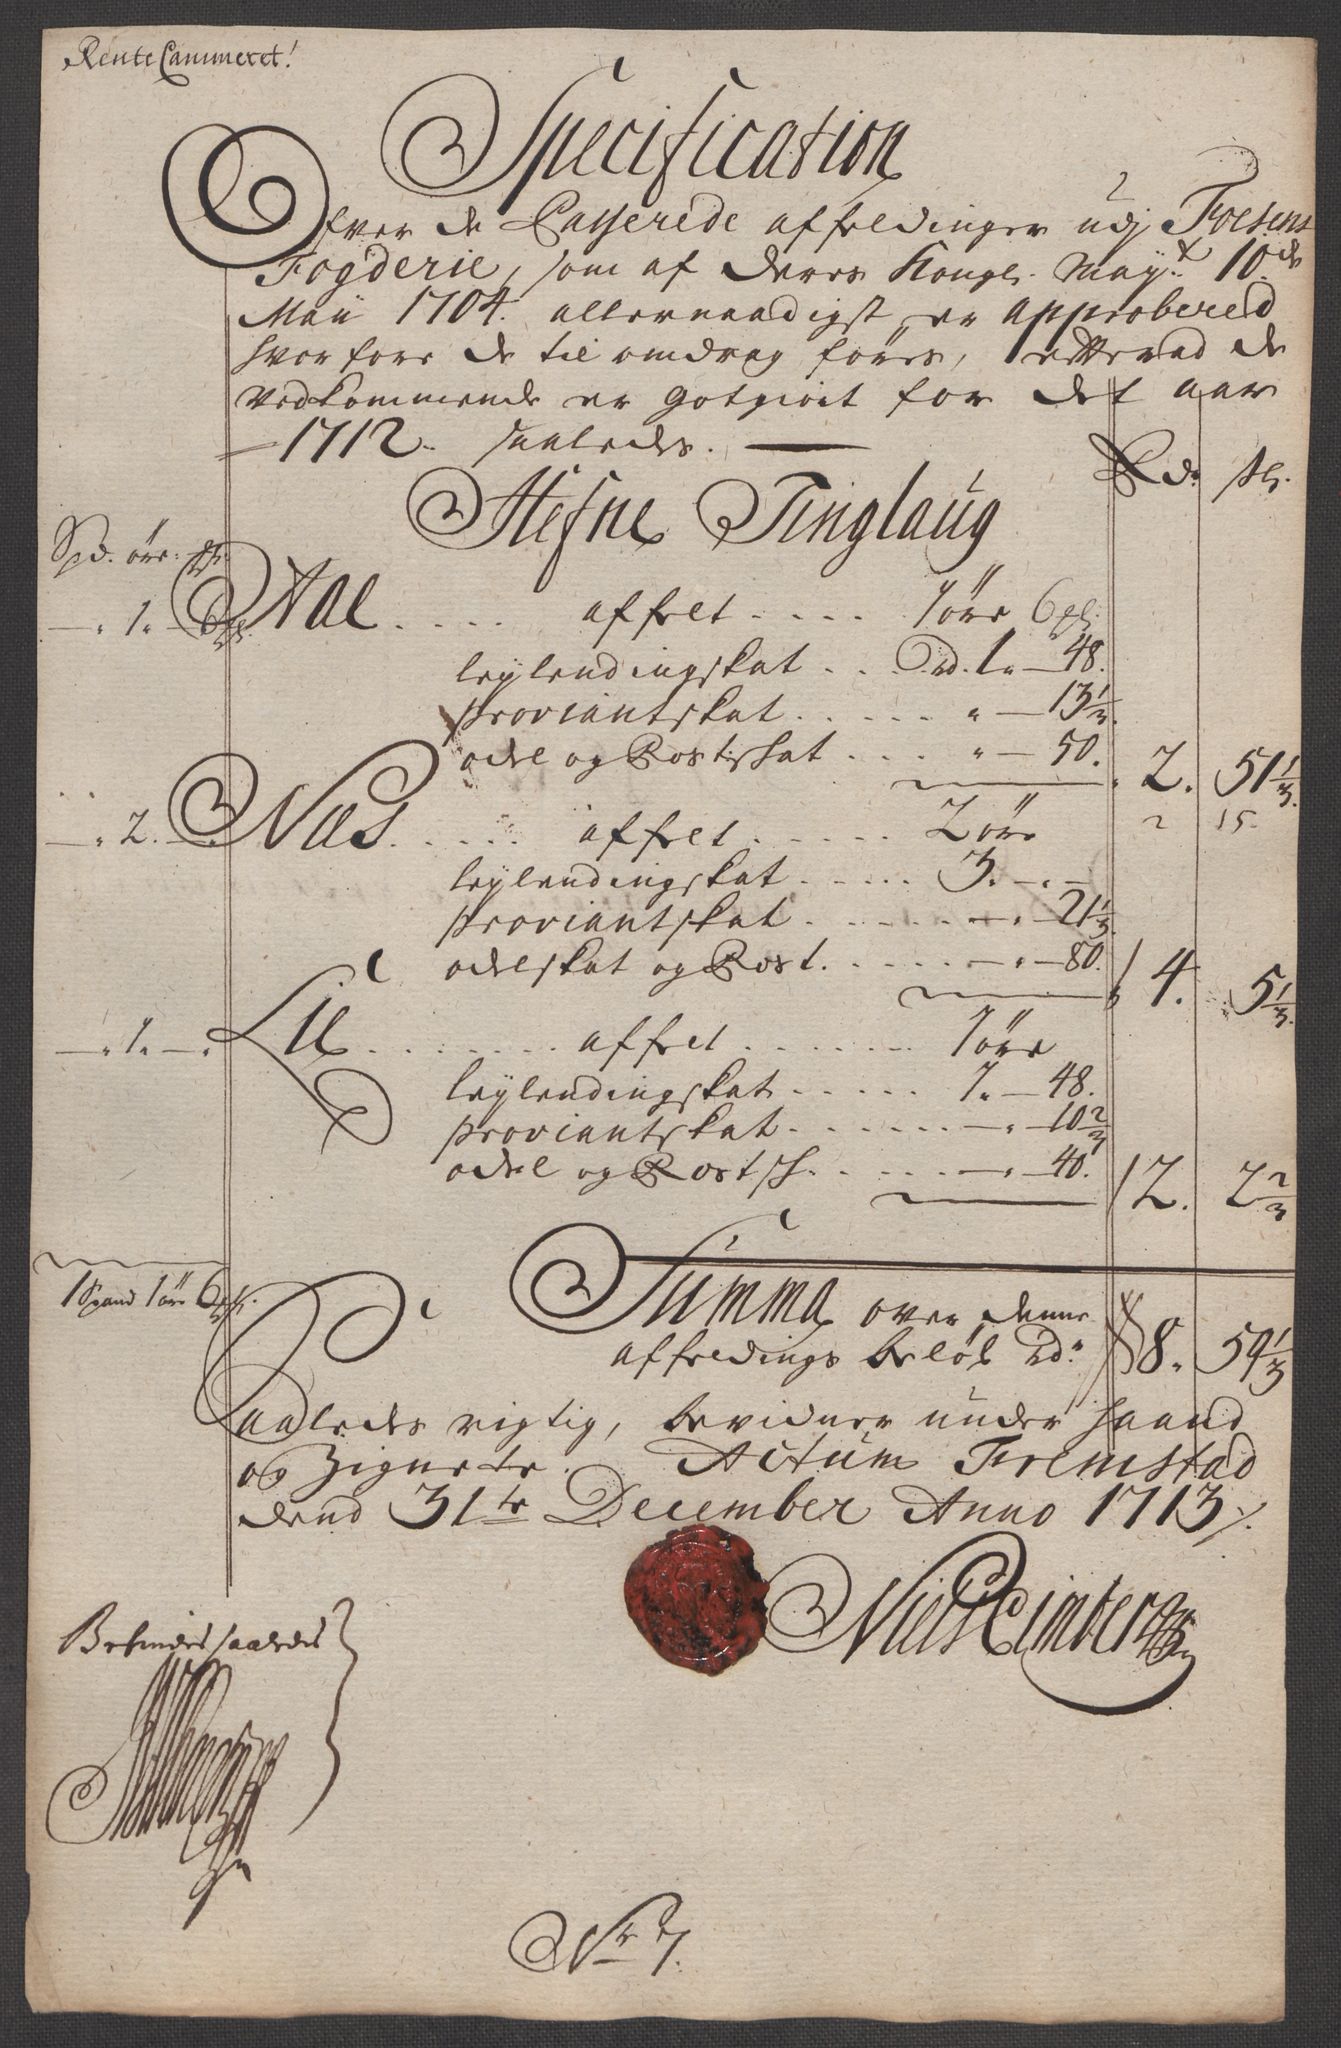 Rente Cammeret!
Specification
Ofver de Casserede affeldinger udj Foesens
Fogderie, som af deres Kongl. May.t 10de
Maÿ 1704. allernaadigst er approbered
hvorfore de til omdrag föres, efterad de
Vedkommende er gotgiort for det aar
1712. saaledes.
Rdr. sk.
Hefne Tinglaug
Spd. öre. pl.
—. 1. — 6 pl. Aae .... affelt .... 1 öre 6 pl.
leylendingskat ... Rd. 1. — 48.
proviantskat ..... " — 13 1/3.
odel og Rostskat .... " — 50. 2. 51 1/3.
2 15.
—. 2. —. Næs ..... affelt ...... 2 öre
leylendingskat ..... 3. —. —
proviantskat ....... —. — 21 1/3.
odelskat og Rost. ..... —. — 80. 4. 5 1/3.
—. 1. —. Lie ........ affelt ........ 1 öre
leylendingskat ..... 1. — 48.
proviantskat ....... —. — 10 2/3
odel og Rostsk. ..... —. — 40. 2. 2 2/3
1 Spand 1 öre 6 pl.
Summa over denne
affeldings beløb Rdr 8. 59 1/3
Saaledes rigtig, bevidner under haand
og Zignete. Actum Fremstad
dend 31te December Anno 1713 ∕.
Niels Cimberg
Befindes saaledes
No 7.